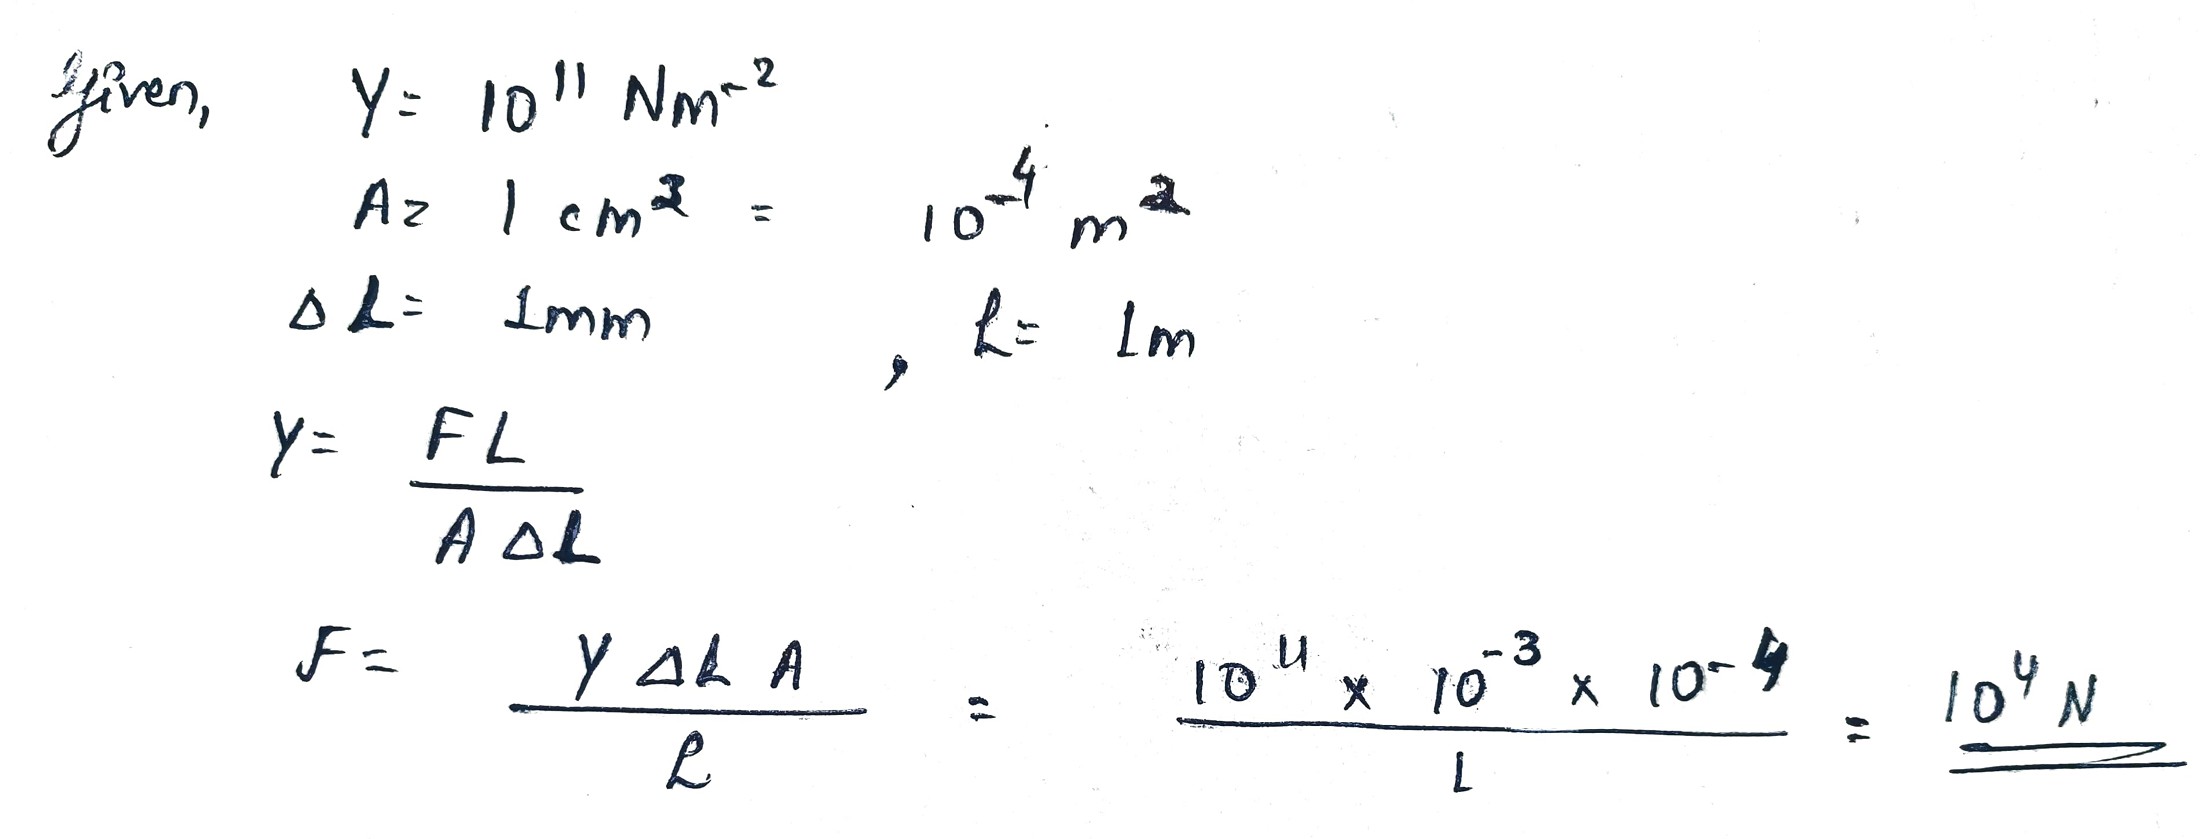 Given, Y = 10¹¹ Nm⁻²
A = 1 cm² = 10⁻⁴ m²
ΔL = 1mm , L = 1m
Y = FL / A ΔL
F = Y ΔL A / L = 10¹¹ × 10⁻³ × 10⁻⁴ / 1 = 10⁴ N